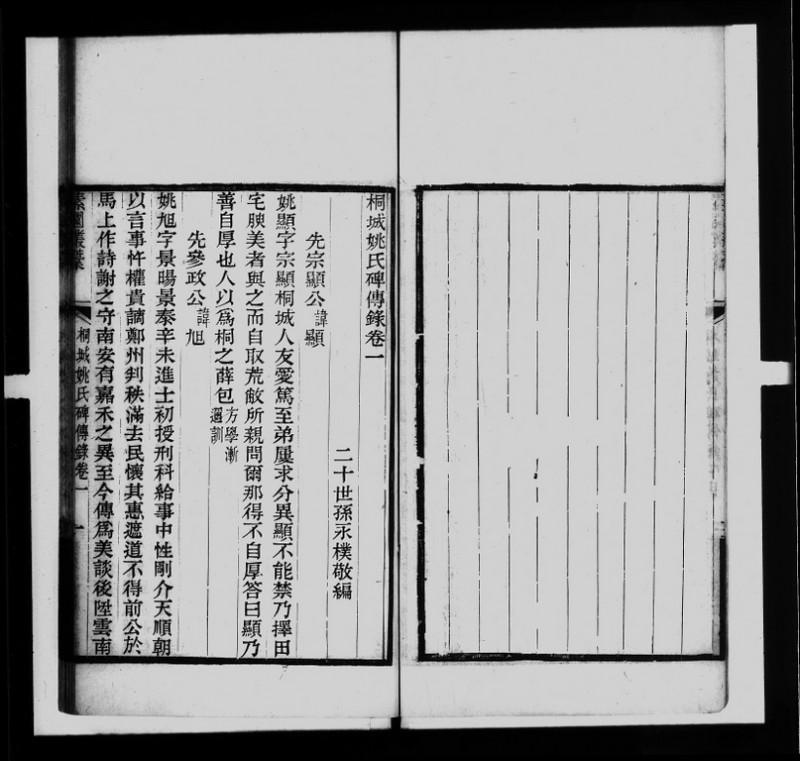 桐城姚氏碑傳錄卷一
二十世孫永樸敬編
先宗顯公諱顯
姚顯字宗顯桐城人友愛篤至弟屢求分異顯不能禁乃擇田
宅腴美者與之而自取荒敝所親問爾那得不自厚答曰顯乃
善自厚也人以爲桐之薛包方學漸
邇訓
先參政公諱旭
姚旭字景暘景泰辛未進士初授刑科給事中性剛介天順朝
以言事忤權貴謫鄭州判秩滿去民懷其惠遮道不得前公於
馬上作詩謝之守南安有嘉禾之異至今傳爲美談後陞雲南
素園叢稾
桐城姚氏碑傳錄卷一
一